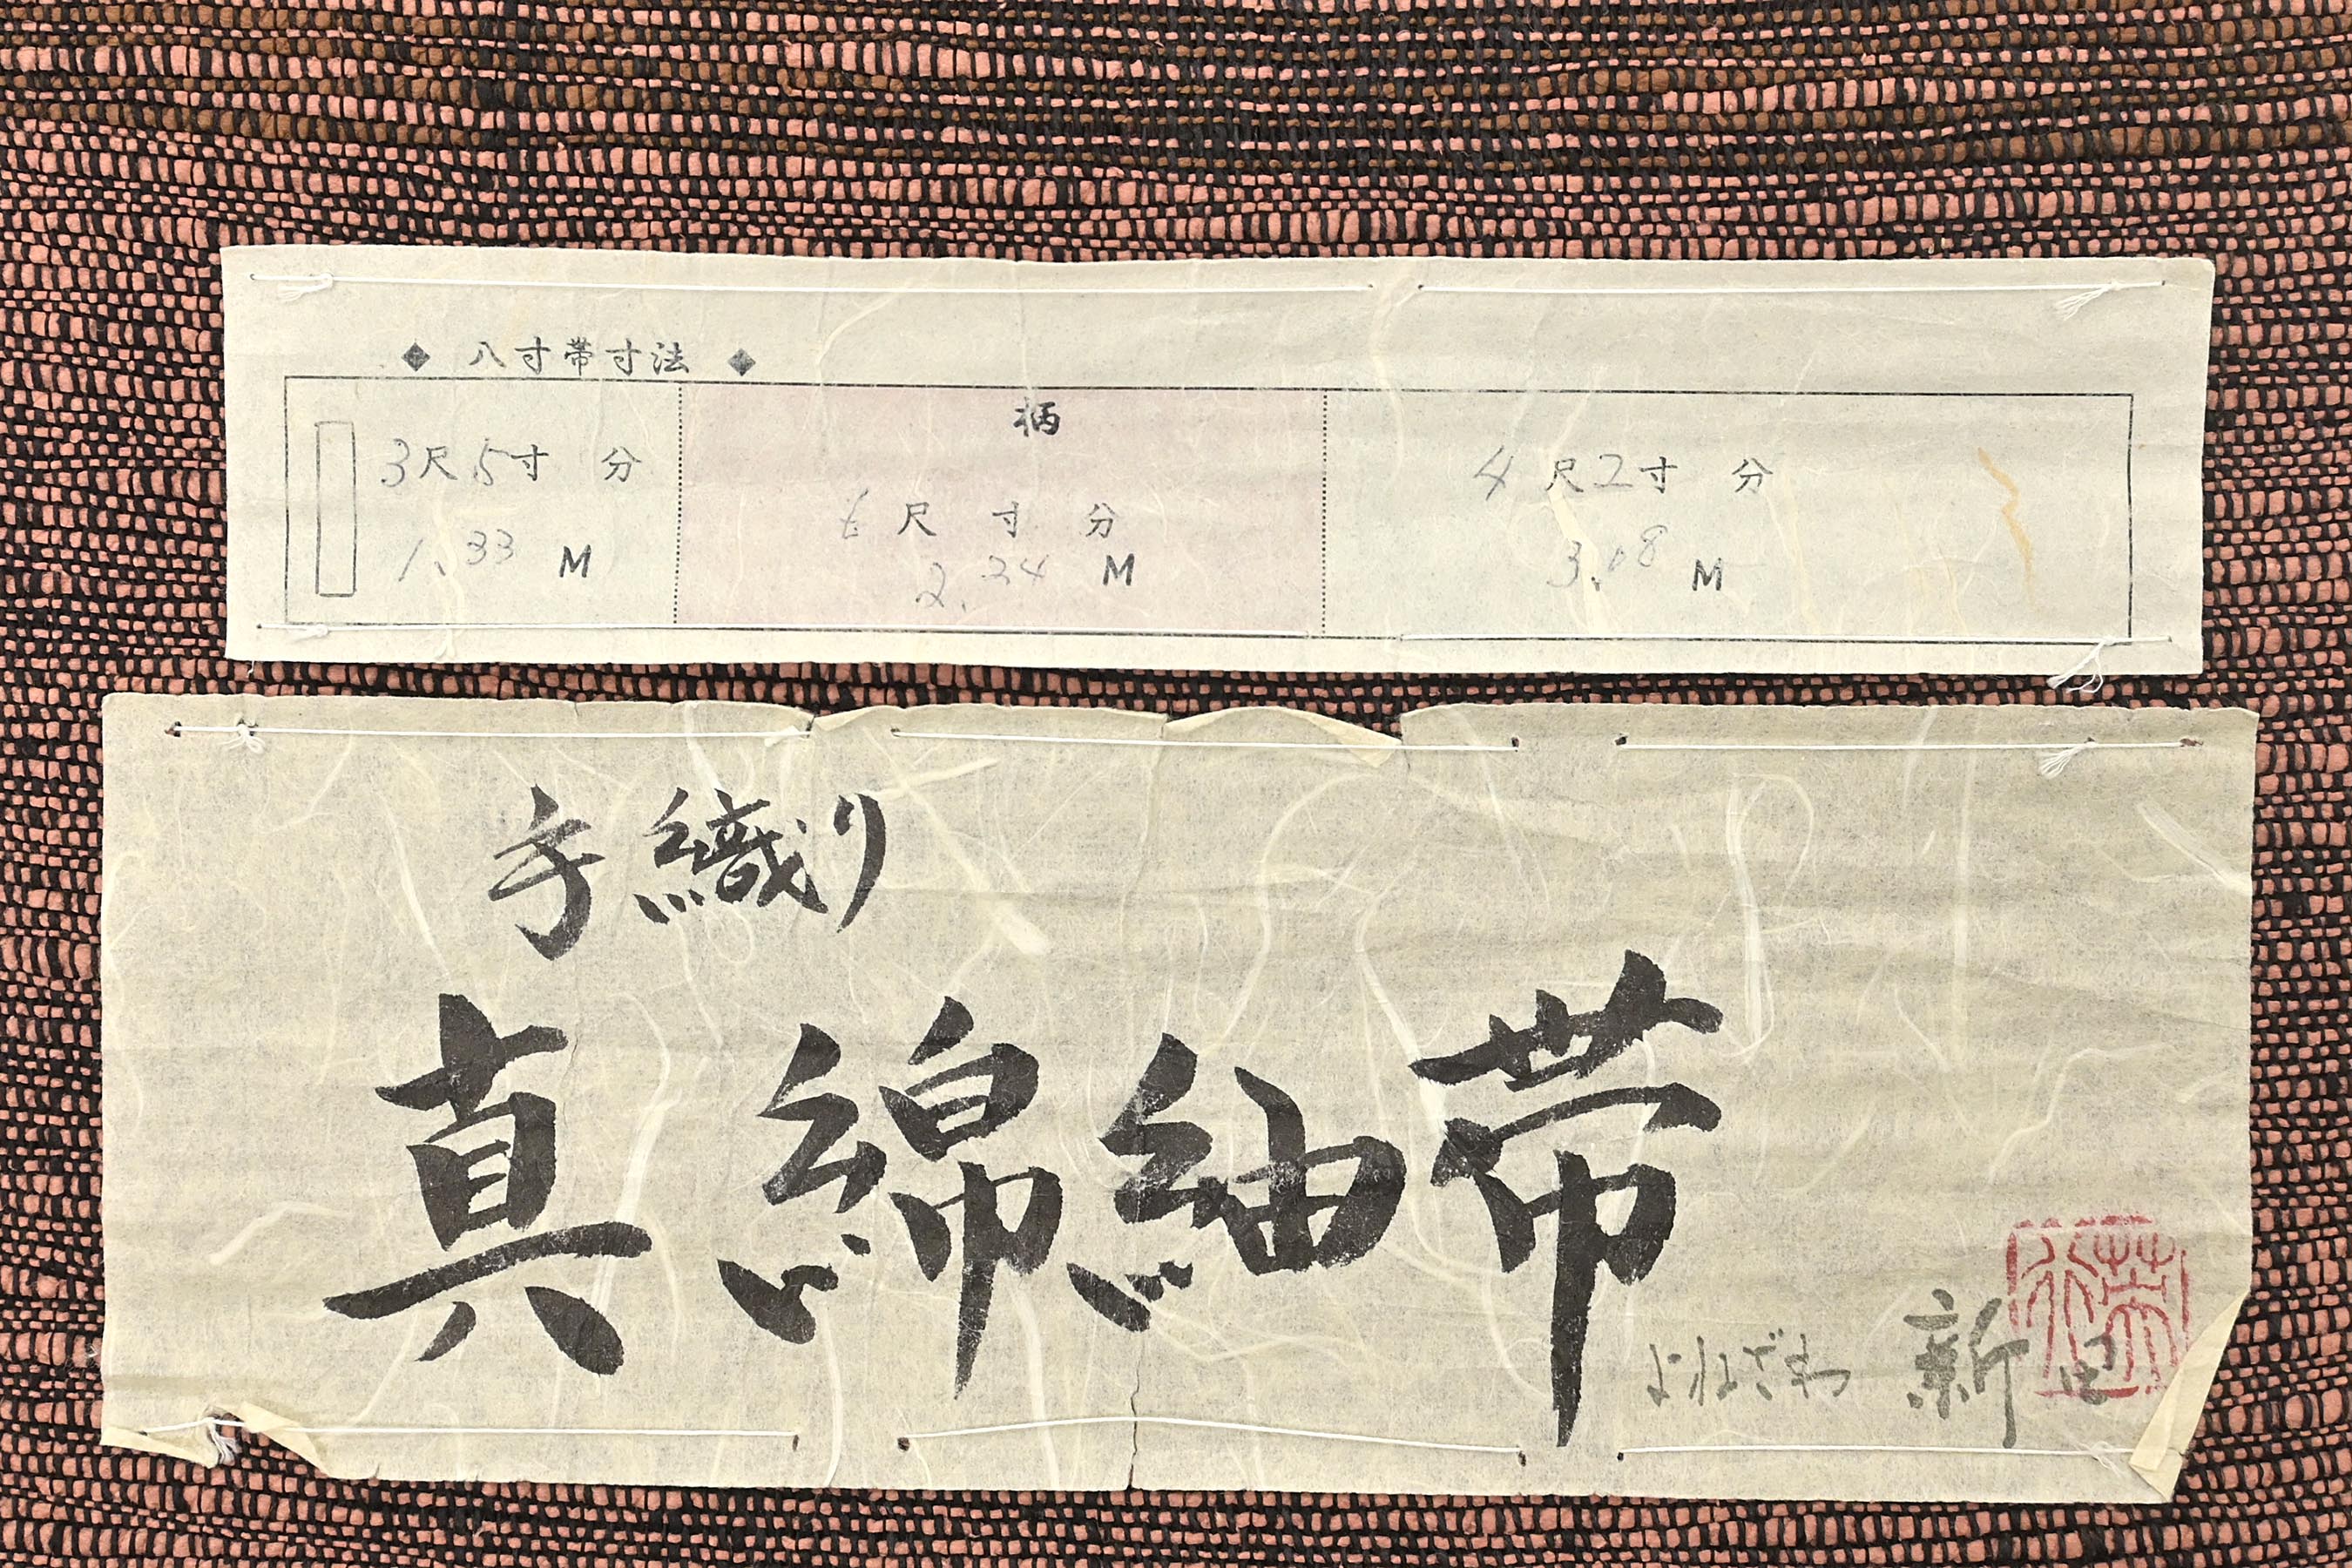 ◆ 八寸帯寸法 ◆
柄
3尺5寸 分
1.33 M
6尺 寸 分
2.24 M
4尺2寸 分
3.08 M
手織り
真綿紬帯
よねざわ 新田